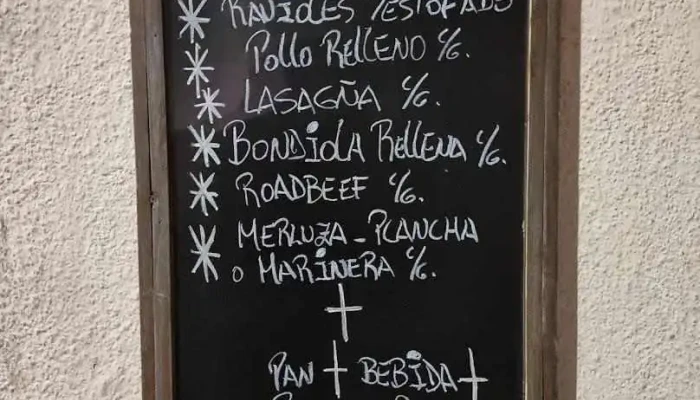 * RAVIOLES /ESTOFADO
* Pollo Relleno c/G.
* LASAGÑA c/G.
* BONDiOLA Rellena c/G.
* ROADBEEF c/G.
* MERLUZA - PLANCHA
o MARINERA c/G.
+
PAN + BEBiDA +